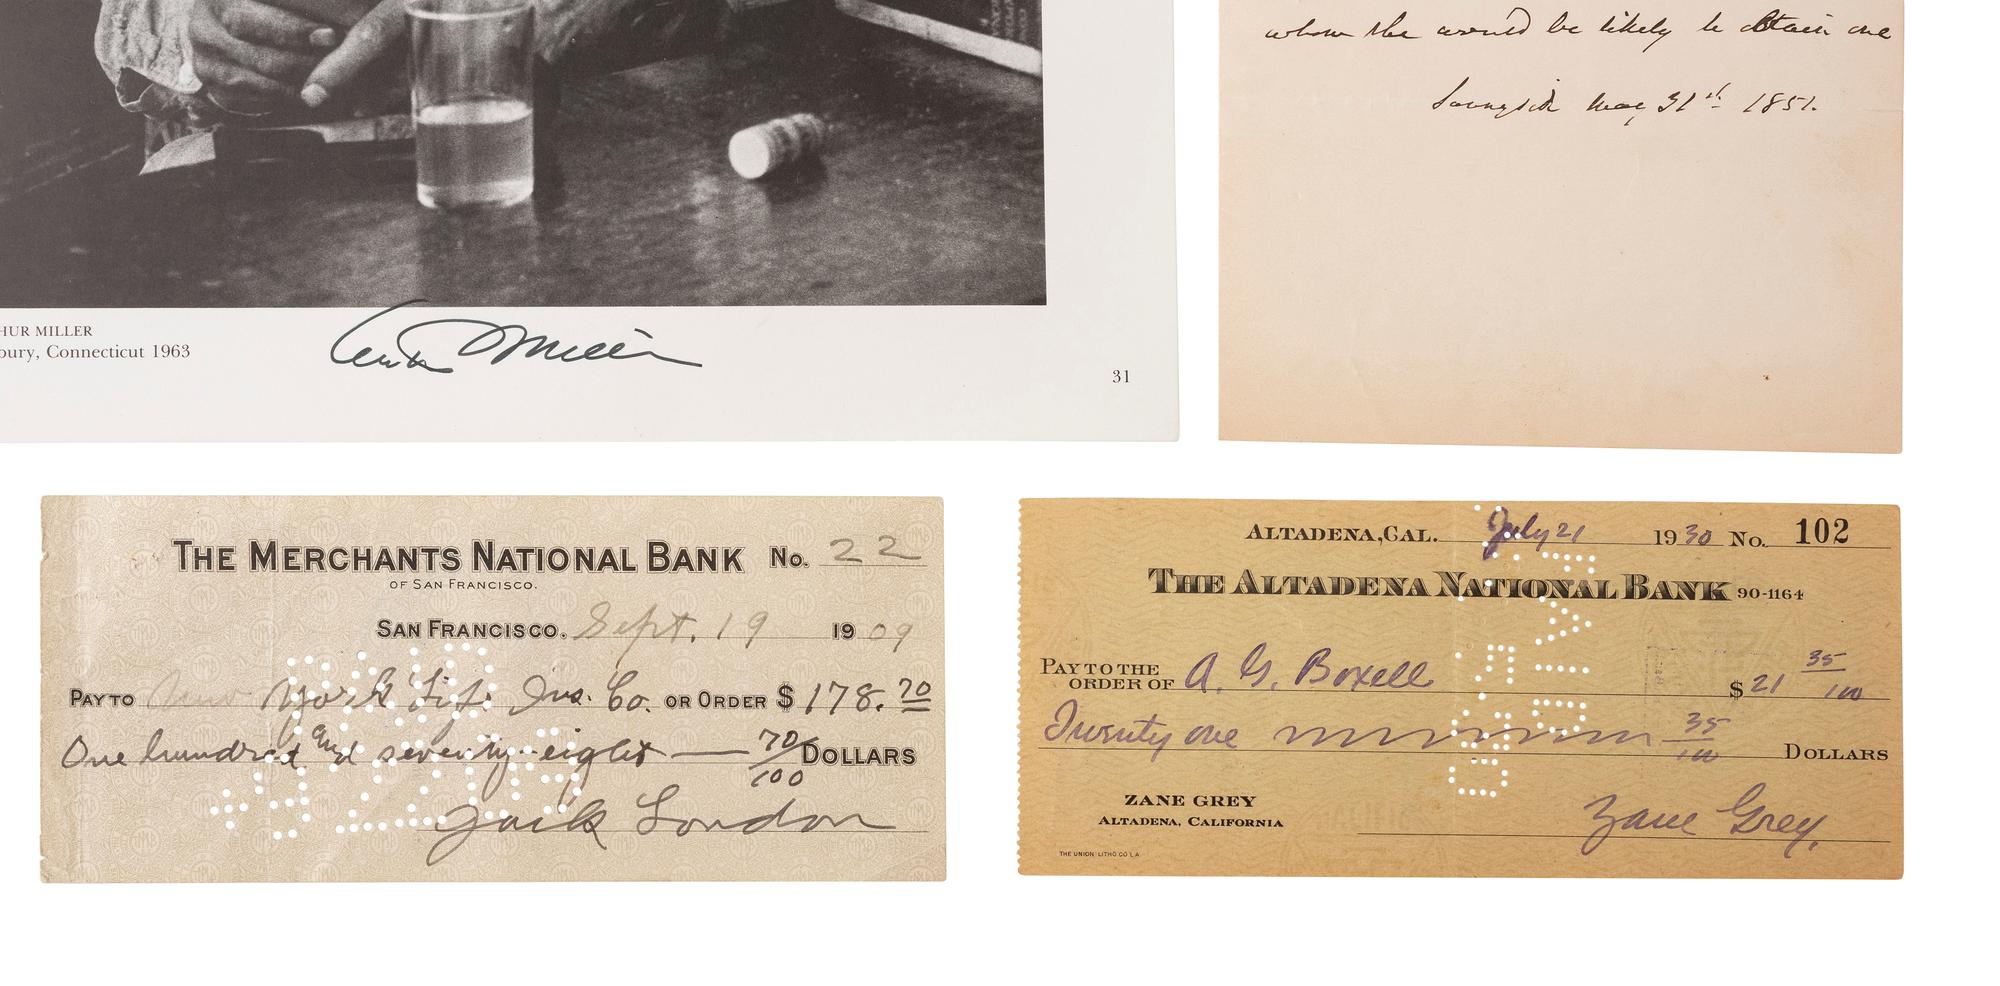 whom she would be likely to obtain one
May 31st 1851.
HUR MILLER
bury, Connecticut 1963
Arthur Miller
31
THE MERCHANTS NATIONAL BANK No. 22
OF SAN FRANCISCO.
SAN FRANCISCO. Sept. 19 1909
PAY TO New York Life Ins. Co. OR ORDER $ 178.70
One hundred and seventy-eight — 70/100 DOLLARS
Jack London
ALTADENA, CAL. July 21 1930 No. 102
THE ALTADENA NATIONAL BANK 90-1164
PAY TO THE ORDER OF A. G. Boxell $ 21 35/100
Twenty one 35/100 DOLLARS
ZANE GREY
ALTADENA, CALIFORNIA
Zane Grey.
THE UNION LITHO CO L A